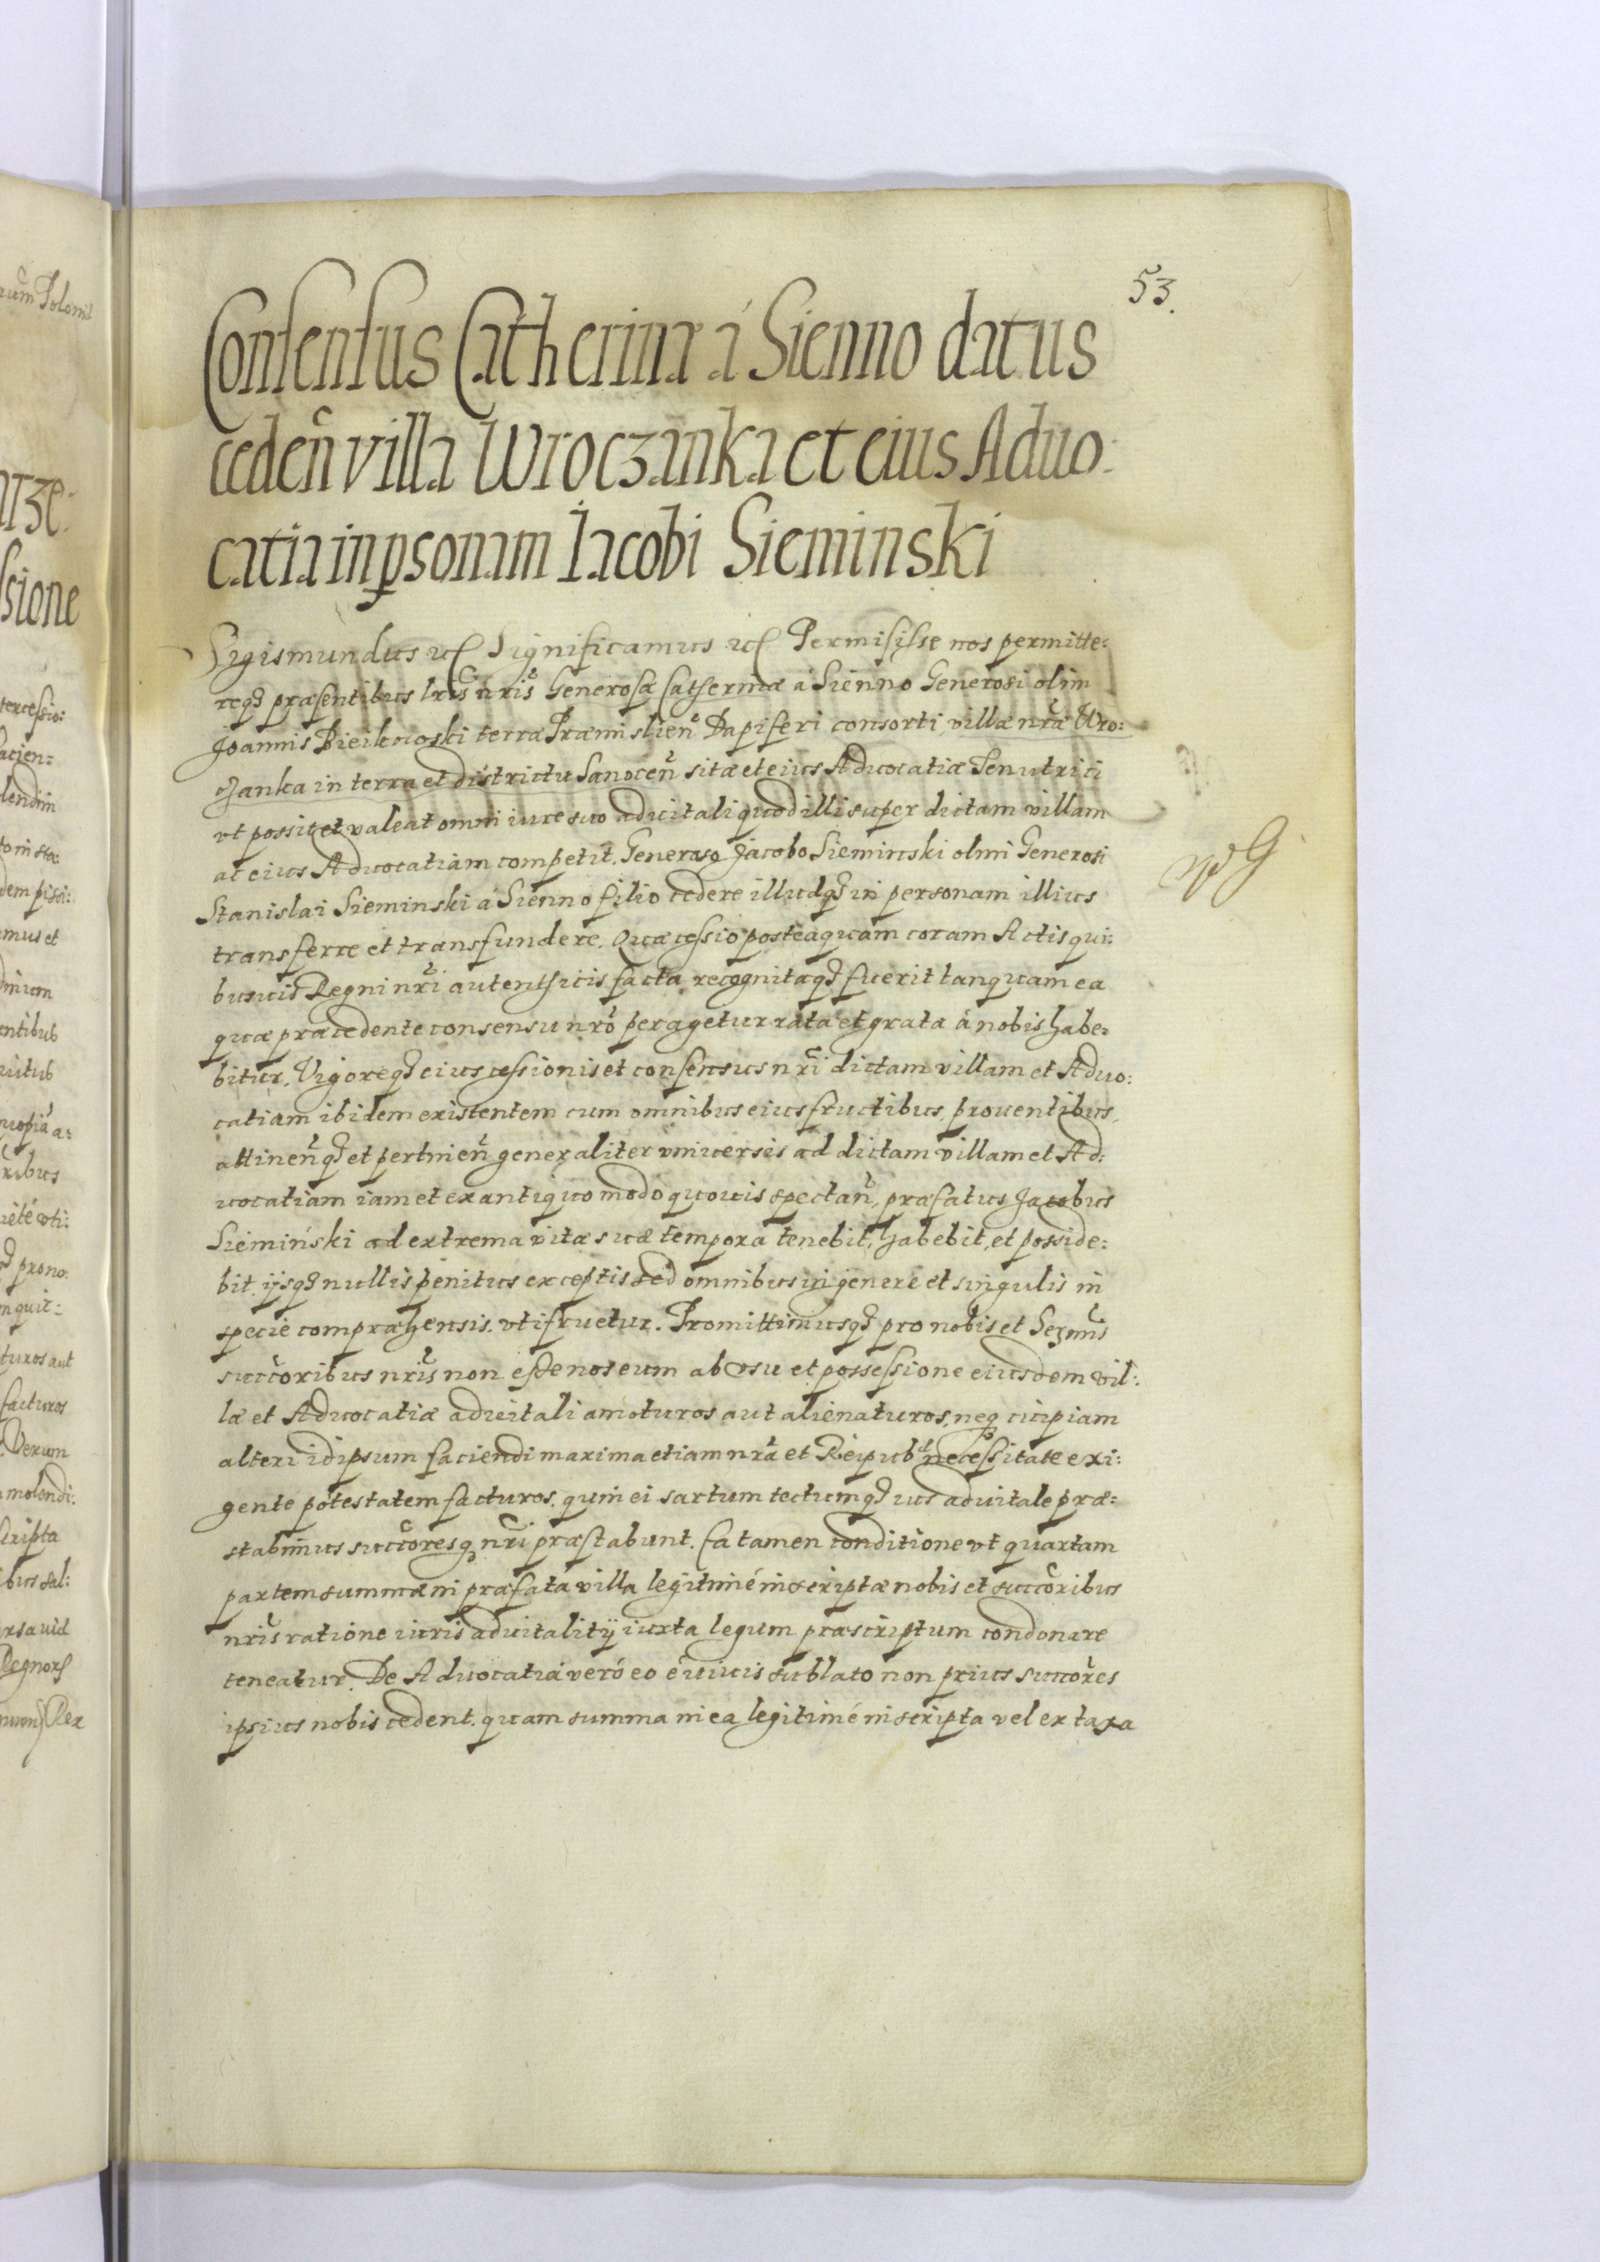 53.
Consensus Catherina á Sienno datus
cedeñ villa Wroczanka et eius Aduo-
catia in psonam Iacobi Sieminski
Sigismundus etc Significamus etc Permisisse nos permitte-
reqz præsentibus lris nris Generosæ Catherinæ á Sienno Generosi olim
Joannis terræ Præmislien Dapiferi consorti, villæ nræ Wro:
czanka in terra et districtu Sanocen sitæ et eius Aduocatiæ Tenutrici
vt possit et valeat omni iure suo aduitali quod illi super dictam villam
at eius Aduocatiam competit. Generoso Jacobo Siemiński olim Generosi
Stanislai Sieminski á Sienno filio cedere illudqz in personam illius
transferre et transfundere. Quæ cessio posteaquam coram Actis qui:
busuis Regni nri autenthicis facta recognitaqz fuerit tanquam ea
quæ præcedente consensu nro peragetur rata et grata á nobis habe-
bitur. Vigoreqz eius cessionis et consensus nri dictam villam et Aduo:
catiam ibidem existentem cum omnibus eius fructibus, prouentibus,
attineñqz et pertineñ generaliter vniuersis ad dictam villam et Ad:
uocatiam iam et ex antiquo modo quouis spectañ, præfatus Jacobus
Siemiński ad extrema vitæ suæ tempora tenebit, habebit, et posside:
bit, ijsqz nullis penitus exceptis sed omnibus in genere et singulis in
specie compræhensis. vti fruetur. Promittimusqz pro nobis et Sermis
succoribus nris non esse nos eum ab vsu et possessione eiusdem vil:
læ et Aduocatiæ aduitali amoturos aut alienaturos, neq cuipiam
alteri idipsum faciendi maxima etiam nra et Reipub necessitate exi:
gente potestatem facturos. quin ei sartum tectumqz ius aduitale præ:
stabimus succoresq nri præstabunt. Ea tamen conditione vt quartam
partem summæ in præfata villa legitimé inscriptæ nobis et succoribus
nris ratione iuris aduitalitij iuxta legum præscriptum condonare
teneatur. De Aduocatia veró eo é viuis sublato non prius succores
ipsius nobis cedent, quam summa in ea legitimé inscripta vel ex taxa